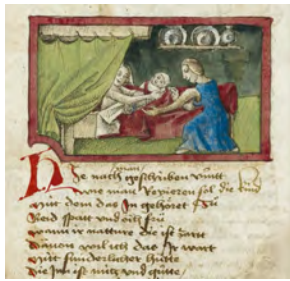 Hie nach geschriben vintt man
wie man Regieren sol die kind
mitt dem das In gehöret zů
Beid spatt vnd ouch frů
wann ir natture die ist zartt
Dauon wil ich das Ir wart
mitt sunderlicher hůtte
Die Inn ist nütz vnd gůtte